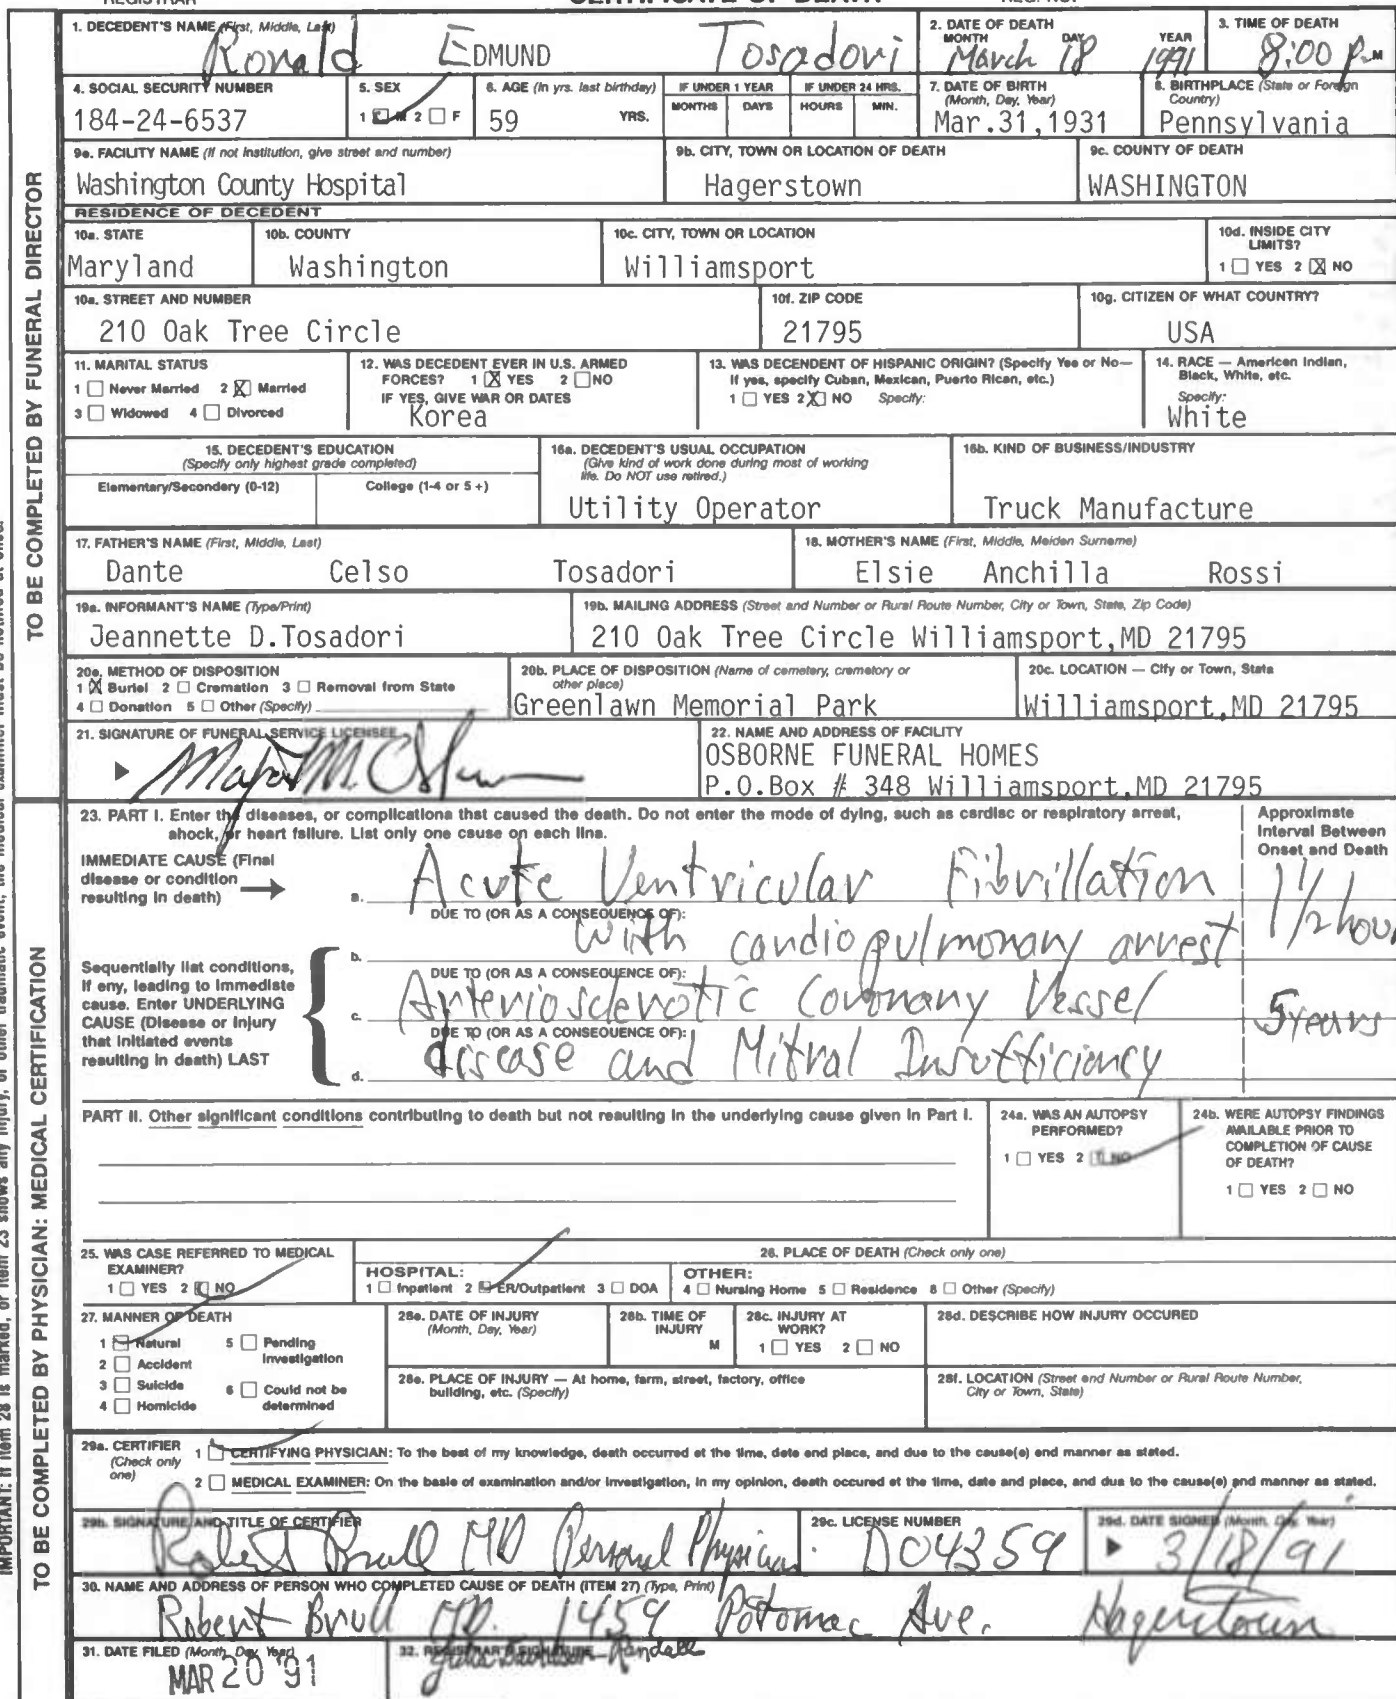 1. DECEDENT'S NAME (First, Middle, Last)
Ronald EDMUND Tosadori
2. DATE OF DEATH
MONTH DAY YEAR
March 18 1991
3. TIME OF DEATH
8:00 P.M
4. SOCIAL SECURITY NUMBER
184-24-6537
5. SEX
1 M 2 F
6. AGE (In yrs. last birthday)
59 YRS.
IF UNDER 1 YEAR
MONTHS DAYS
IF UNDER 24 HRS.
HOURS MIN.
7. DATE OF BIRTH
(Month, Day, Year)
Mar.31,1931
8. BIRTHPLACE (State or Foreign
Country)
Pennsylvania
9a. FACILITY NAME (If not institution, give street and number)
Washington County Hospital
9b. CITY, TOWN OR LOCATION OF DEATH
Hagerstown
9c. COUNTY OF DEATH
WASHINGTON
RESIDENCE OF DECEDENT
10a. STATE
Maryland
10b. COUNTY
Washington
10c. CITY, TOWN OR LOCATION
Williamsport
10d. INSIDE CITY
LIMITS?
1 YES 2 X NO
10e. STREET AND NUMBER
210 Oak Tree Circle
10f. ZIP CODE
21795
10g. CITIZEN OF WHAT COUNTRY?
USA
11. MARITAL STATUS
1 Never Married 2 X Married
3 Widowed 4 Divorced
12. WAS DECEDENT EVER IN U.S. ARMED
FORCES? 1 X YES 2 NO
IF YES, GIVE WAR OR DATES
Korea
13. WAS DECENDENT OF HISPANIC ORIGIN? (Specify Yes or No—
If yes, specify Cuban, Mexican, Puerto Rican, etc.)
1 YES 2 X NO Specify:
14. RACE — American Indian,
Black, White, etc.
Specify:
White
15. DECEDENT'S EDUCATION
(Specify only highest grade completed)
Elementary/Secondary (0-12) College (1-4 or 5+)
16a. DECEDENT'S USUAL OCCUPATION
(Give kind of work done during most of working
life. Do NOT use retired.)
Utility Operator
16b. KIND OF BUSINESS/INDUSTRY
Truck Manufacture
17. FATHER'S NAME (First, Middle, Last)
Dante Celso Tosadori
18. MOTHER'S NAME (First, Middle, Maiden Surname)
Elsie Anchilla Rossi
19a. INFORMANT'S NAME (Type/Print)
Jeannette D.Tosadori
19b. MAILING ADDRESS (Street and Number or Rural Route Number, City or Town, State, Zip Code)
210 Oak Tree Circle Williamsport,MD 21795
20a. METHOD OF DISPOSITION
1 X Burial 2 Cremation 3 Removal from State
4 Donation 5 Other (Specify)
20b. PLACE OF DISPOSITION (Name of cemetery, crematory or
other place)
Greenlawn Memorial Park
20c. LOCATION — City or Town, State
Williamsport,MD 21795
21. SIGNATURE OF FUNERAL SERVICE LICENSEE
22. NAME AND ADDRESS OF FACILITY
OSBORNE FUNERAL HOMES
P.O.Box # 348 Williamsport,MD 21795
23. PART I. Enter the diseases, or complications that caused the death. Do not enter the mode of dying, such as cardiac or respiratory arrest,
shock, or heart failure. List only one cause on each line.
Approximate
Interval Between
Onset and Death
IMMEDIATE CAUSE (Final
disease or condition
resulting in death)
a. Acute Ventricular Fibrillation 1 1/2 hour
DUE TO (OR AS A CONSEQUENCE OF):
b. with cardiopulmonary arrest
Sequentially list conditions,
if any, leading to immediate
cause. Enter UNDERLYING
CAUSE (Disease or injury
that initiated events
resulting in death) LAST
DUE TO (OR AS A CONSEQUENCE OF):
c. Arteriosclerotic Coronary Vessel 5 years
DUE TO (OR AS A CONSEQUENCE OF):
d. disease and Mitral Insufficiency
PART II. Other significant conditions contributing to death but not resulting in the underlying cause given in Part I.
24a. WAS AN AUTOPSY
PERFORMED?
1 YES 2 NO
24b. WERE AUTOPSY FINDINGS
AVAILABLE PRIOR TO
COMPLETION OF CAUSE
OF DEATH?
1 YES 2 NO
25. WAS CASE REFERRED TO MEDICAL
EXAMINER?
1 YES 2 NO
26. PLACE OF DEATH (Check only one)
HOSPITAL:
1 Inpatient 2 ER/Outpatient 3 DOA
OTHER:
4 Nursing Home 5 Residence 6 Other (Specify)
27. MANNER OF DEATH
1 Natural 5 Pending
Investigation
2 Accident
3 Suicide 6 Could not be
4 Homicide determined
28a. DATE OF INJURY
(Month, Day, Year)
28b. TIME OF
INJURY
M
28c. INJURY AT
WORK?
1 YES 2 NO
28d. DESCRIBE HOW INJURY OCCURED
28e. PLACE OF INJURY — At home, farm, street, factory, office
building, etc. (Specify)
28f. LOCATION (Street and Number or Rural Route Number,
City or Town, State)
29a. CERTIFIER
(Check only
one)
1 CERTIFYING PHYSICIAN: To the best of my knowledge, death occurred at the time, date and place, and due to the cause(s) and manner as stated.
2 MEDICAL EXAMINER: On the basis of examination and/or investigation, in my opinion, death occured at the time, date and place, and due to the cause(s) and manner as stated.
29b. SIGNATURE AND TITLE OF CERTIFIER
Robert Brull MD Personal Physician
29c. LICENSE NUMBER
D04359
29d. DATE SIGNED (Month, Day, Year)
3/18/91
30. NAME AND ADDRESS OF PERSON WHO COMPLETED CAUSE OF DEATH (ITEM 27) (Type, Print)
Robert Brull MD. 1459 Potomac Ave. Hagerstown
31. DATE FILED (Month, Day, Year)
MAR 20 '91
32. REGISTRAR'S SIGNATURE
TO BE COMPLETED BY FUNERAL DIRECTOR
TO BE COMPLETED BY PHYSICIAN: MEDICAL CERTIFICATION